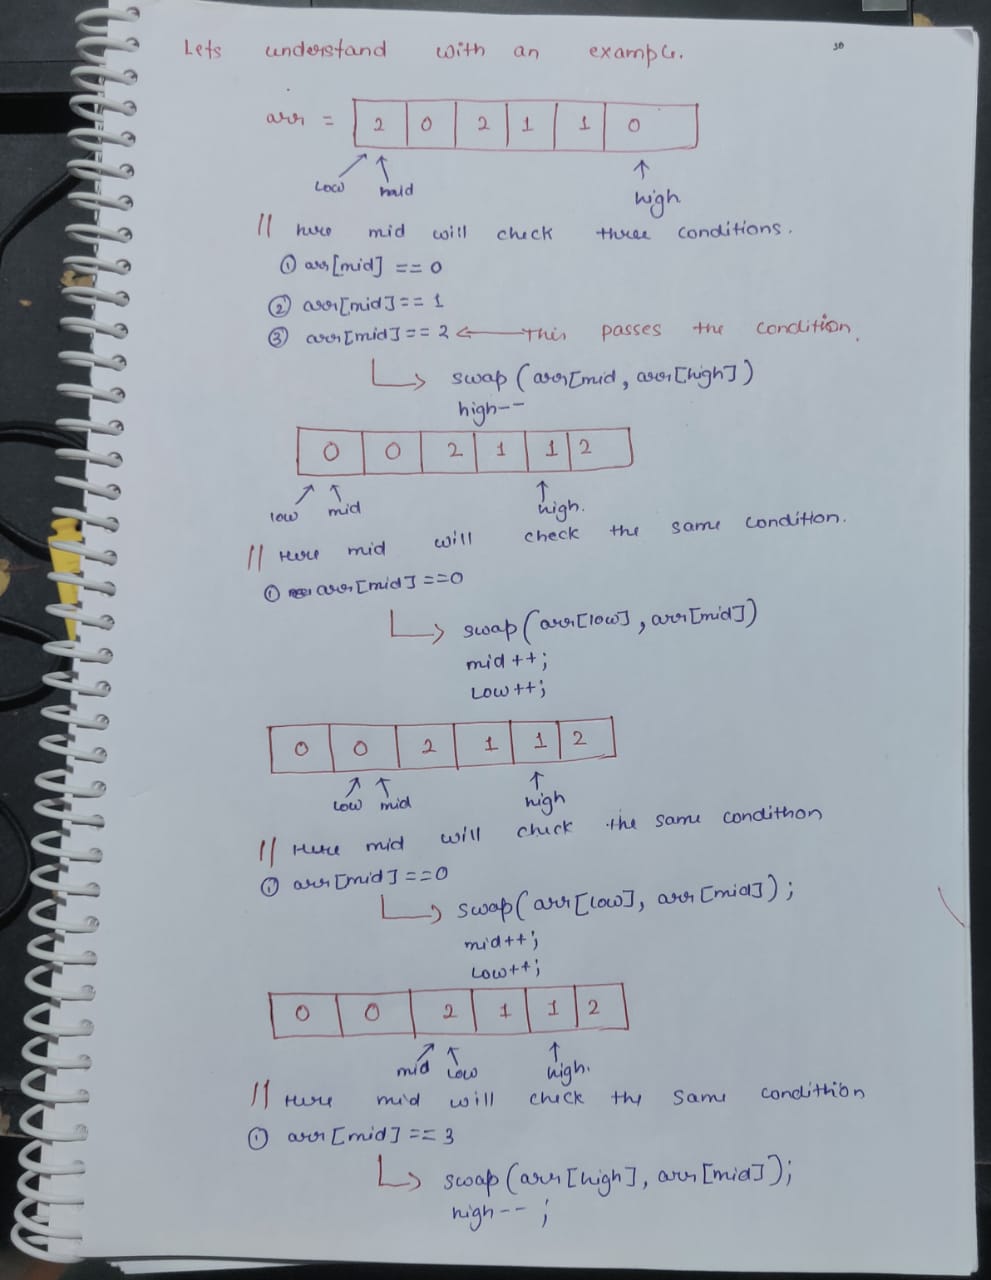 30
Lets understand with an example.
arr = 2 0 2 1 1 0
low mid high
// here mid will check three conditions.
① arr[mid] == 0
② arr[mid] == 1
③ arr[mid] == 2 ← This passes the condition.
↳ swap(arr[mid, arr[high])
high--
0 0 2 1 1 2
low mid high.
// Here mid will check the same condition.
① arr[mid] ==0
↳ swap(arr[low], arr[mid])
mid ++;
Low ++;
0 0 2 1 1 2
low mid high
// Here mid will check the same condithon
① arr[mid] ==0
↳ swap(arr[low], arr[mid]);
mid++;
Low++;
0 0 2 1 1 2
mid low high.
// Here mid will check the same condithion
① arr[mid] == 3
↳ swap(arr[high], arr[mid]);
high-- ;